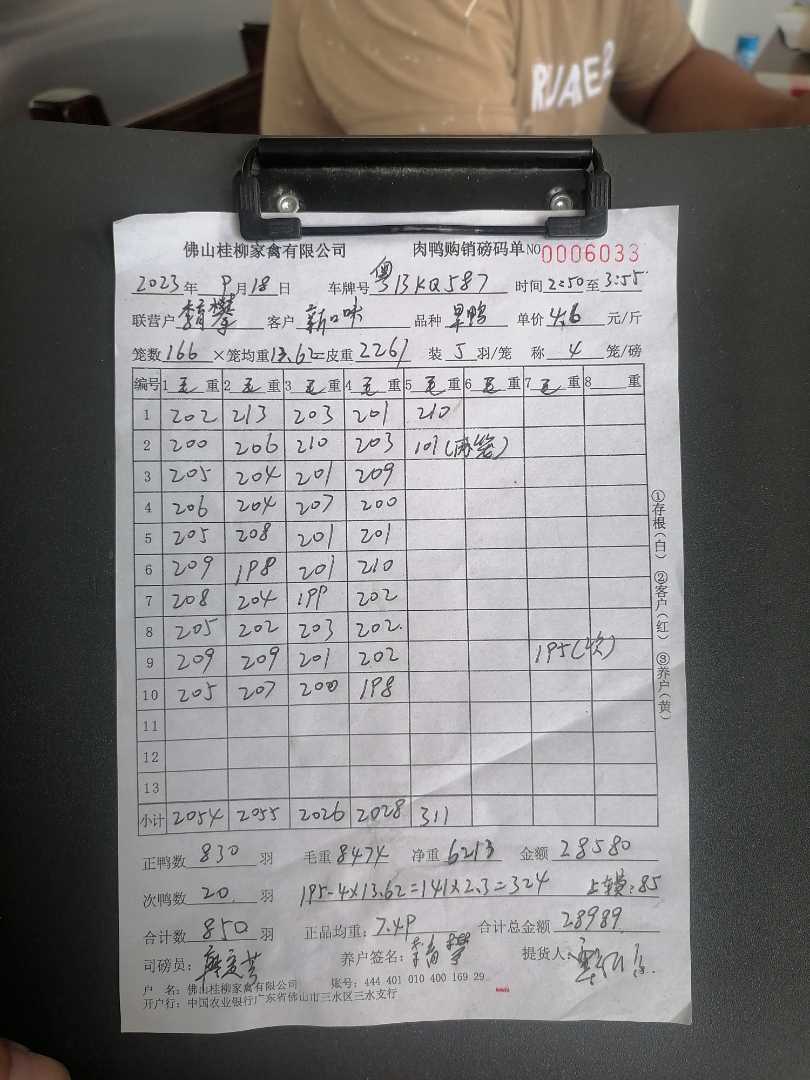 佛山桂柳家禽有限公司 肉鸭购销磅码单 NO 0006033
2023年 9月18日 车牌号 粤BKQ587 时间2:50至3:55
联营户 客户 新口味 品种 单价 4.6 元/斤
笼数166×笼均重13.62=皮重2261 装5羽/笼 称4笼/磅
编号 1毛重 2毛重 3毛重 4毛重 5毛重 6毛重 7毛重 8 重
1 202 213 203 201 210
2 200 206 210 203 101(两笼)
3 205 204 201 209
4 206 204 207 200
5 205 208 201 201
6 209 198 201 210
7 208 204 199 202
8 205 202 203 202
9 209 209 201 202 195(次)
10 205 207 200 198
11
12
13
小计 2054 2055 2026 2028 311
正鸭数 830 羽 毛重8474 净重6213 金额28580
次鸭数 20 羽 195-4×13.62=141×2.3=324 上车费:85
合计数 850 羽 正品均重:7.49 合计总金额28989
司磅员: 养户签名: 提货人:
户 名:佛山桂柳家禽有限公司 账号:444 401 010 400 169 29
开户行:中国农业银行广东省佛山市三水区三水支行
①存根(白) ②客户(红) ③养户(黄)